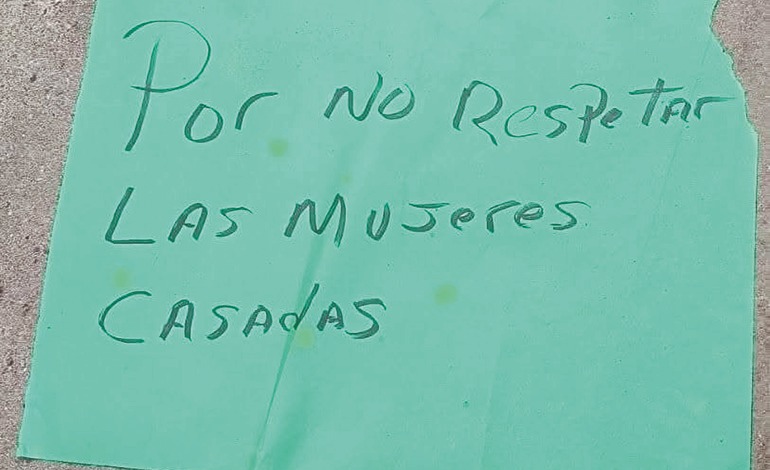 Por NO Respetar
LAS MUJeres
CASAdAS